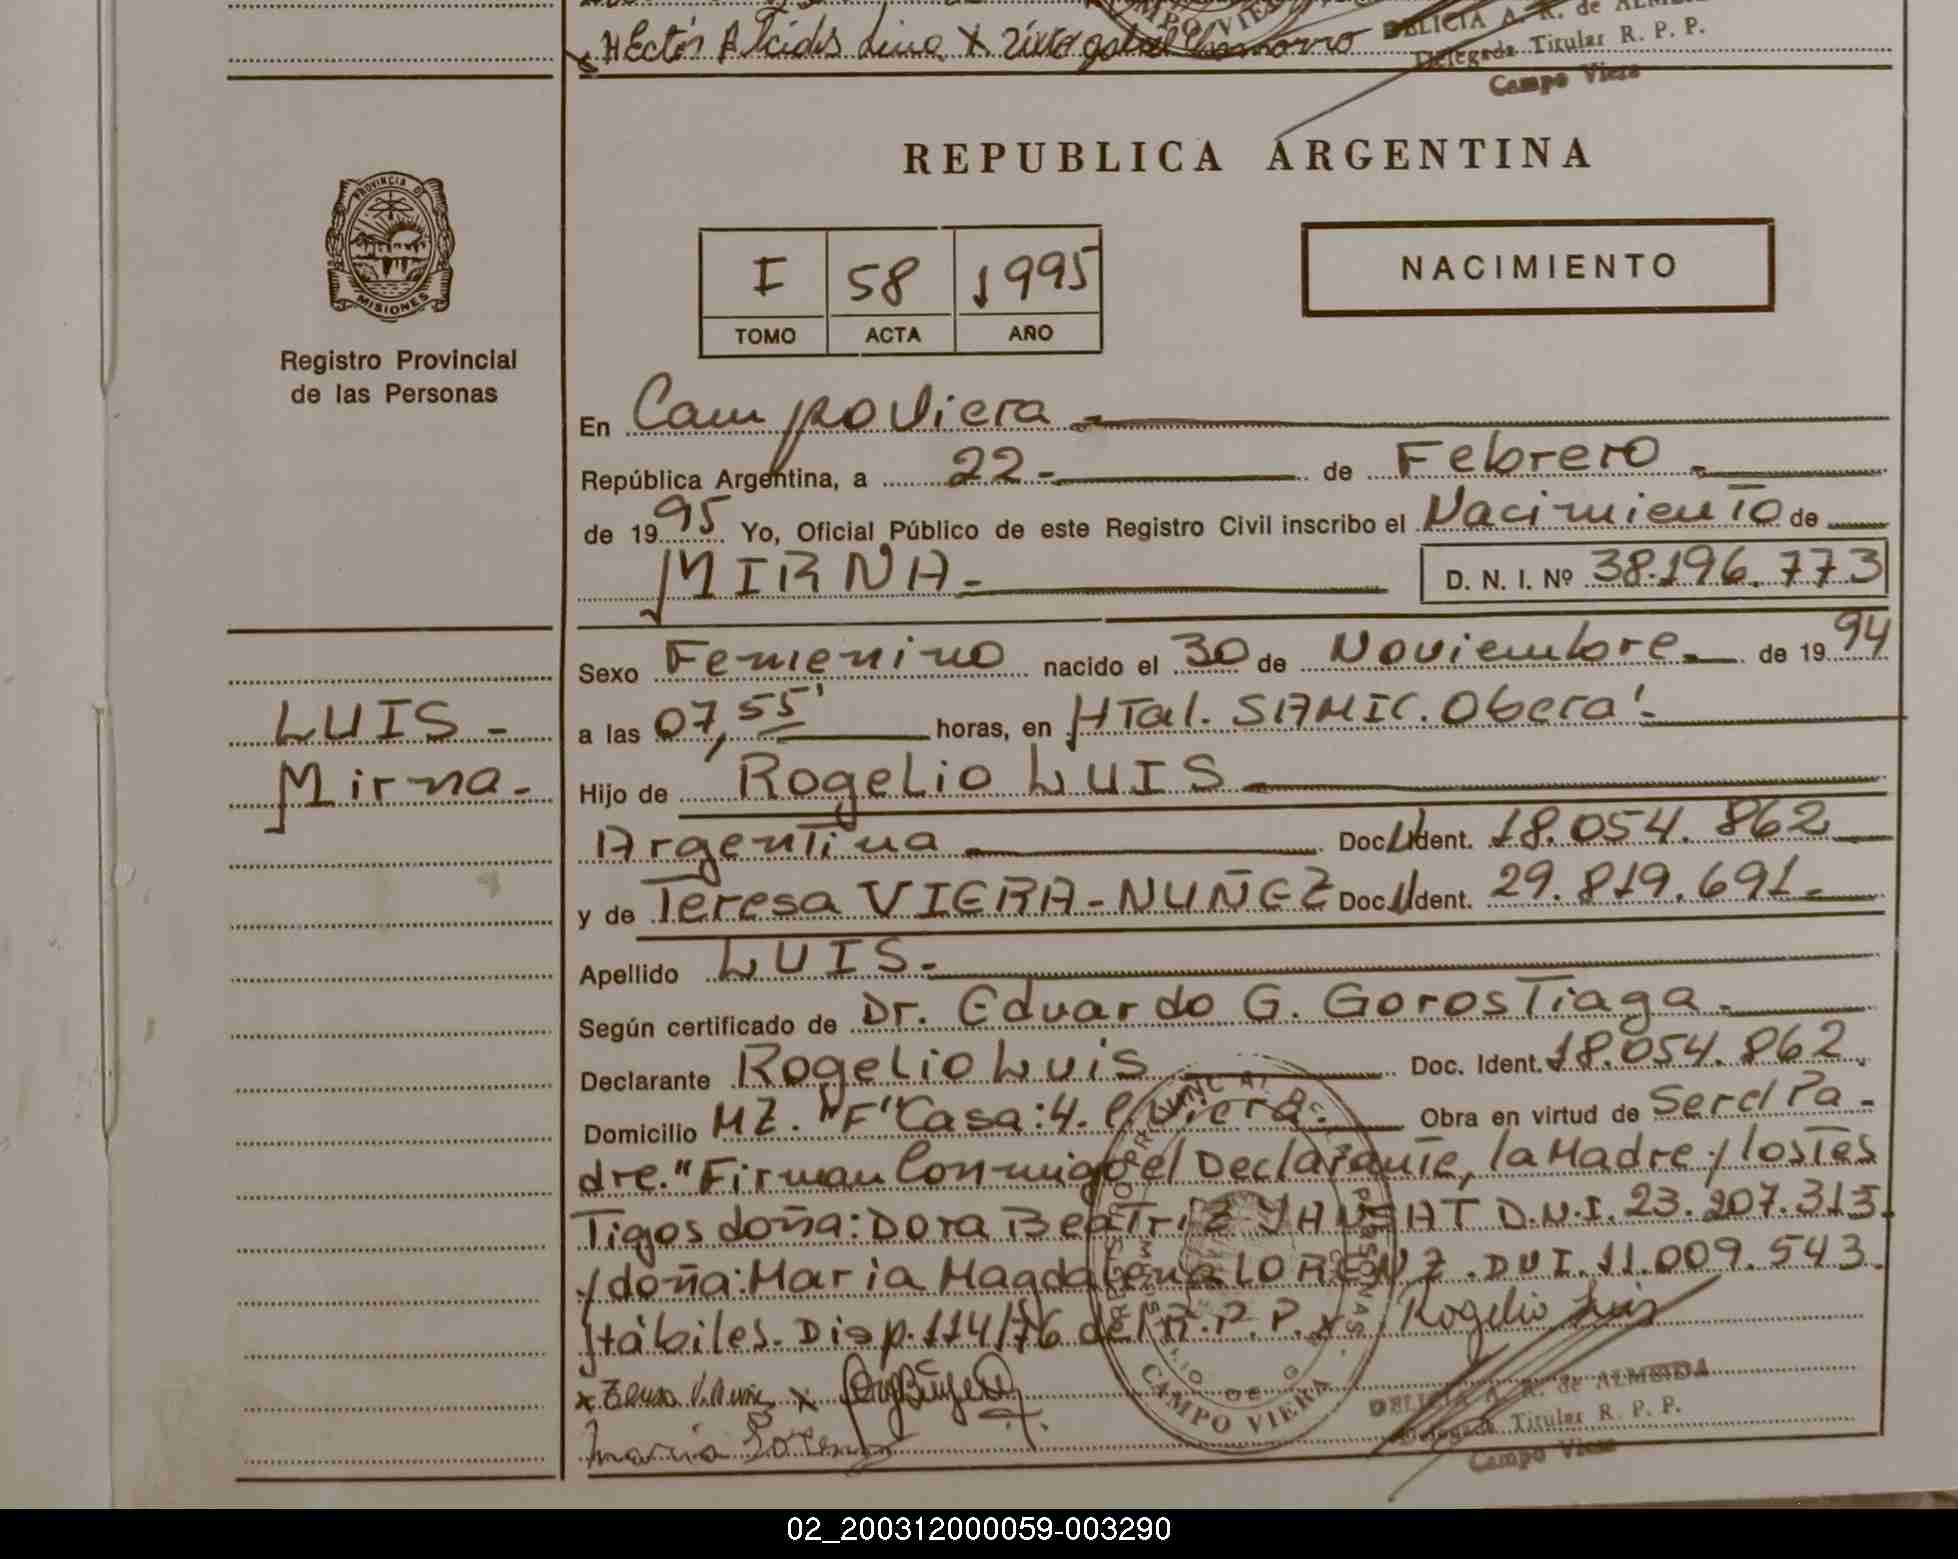 Héctor Alcides Lino X
DELICIA A. R. de ALMEIDA
Delegada Titular R. P. P.
Campo Viera
REPUBLICA ARGENTINA
PROVINCIA DE
MISIONES
Registro Provincial
de las Personas
I 58 1995
TOMO ACTA AÑO
NACIMIENTO
En Campo Viera.-
República Argentina, a 22.- de Febrero.-
de 1995 Yo, Oficial Público de este Registro Civil inscribo el Nacimiento de
MIRNA.- D. N. I. Nº 38.196.773
Sexo Femenino nacido el 30 de Noviembre.- de 1994
a las 07,55' horas, en HTal. SAMIC. Oberá.-
LUIS -
Mirna.-
Hijo de Rogelio LUIS.-
Argentina Doc. Ident. 18.054.862
y de Teresa VIERA-NUÑEZ Doc. Ident. 29.819.691.-
Apellido LUIS.-
Según certificado de Dr. Eduardo G. Gorostiaga.-
Declarante Rogelio Luis Doc. Ident. 18.054.862
Domicilio MZ. "F" Casa: 4. C. Viera.- Obra en virtud de Ser el Pa-
dre." Firman Conmigo el Declarante, la Madre y los Tes
Tigos doña: Dora Beatriz D.N.I. 23.207.313.
y doña: Maria Magdalena LORENZ. DNI. 11.009.543.
Hábiles. Disp. 114/76 del R.P.P. x Rogelio Luis
x x
Maria Lorenz
CAMPO VIERA
DELICIA A. R. de ALMEIDA
Delegada Titular R. P. P.
Campo Viera
02_200312000059-003290